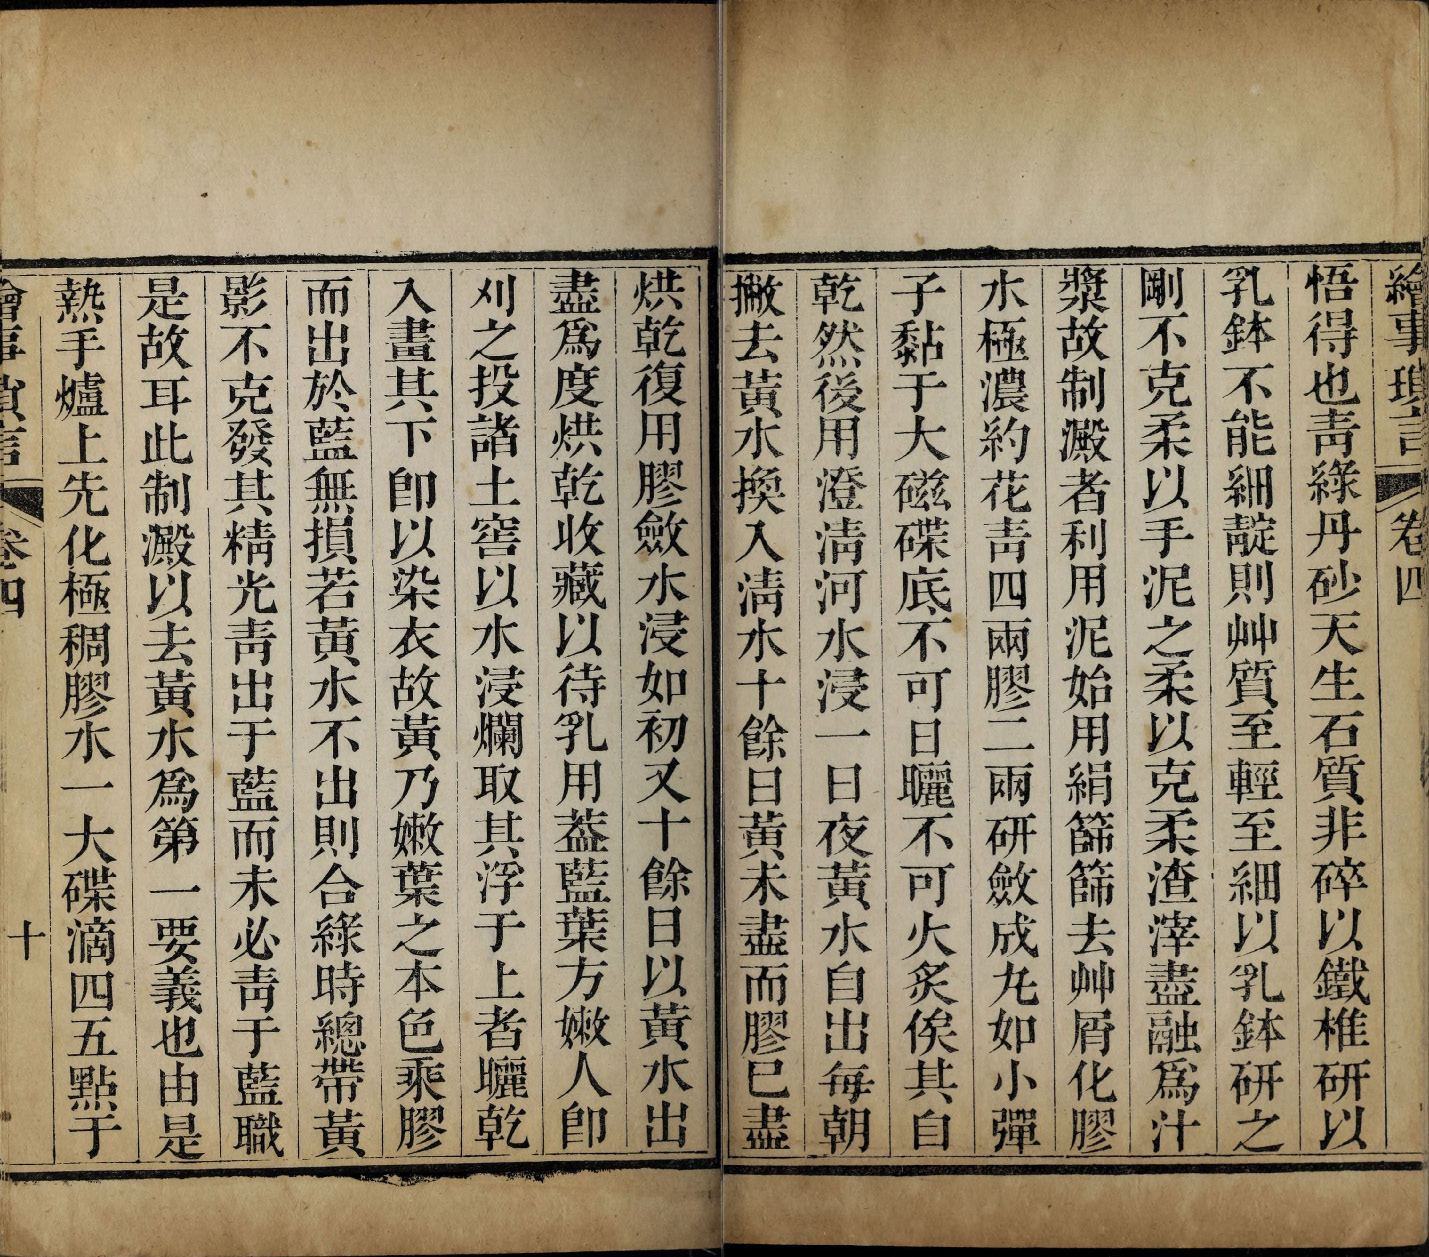 繪事瑣言 卷四
悟得也靑綠丹砂天生石質非碎以鐵椎研以
乳鉢不能細靛則艸質至輕至細以乳鉢研之
剛不克柔以手泥之柔以克柔渣滓盡融爲汁
漿故制澱者利用泥始用絹篩篩去艸屑化膠
水極濃約花靑四兩膠二兩研斂成丸如小彈
子黏于大磁碟底不可日曬不可火炙俟其自
乾然後用澄淸河水浸一日夜黃水自出每朝
撇去黃水換入淸水十餘日黃未盡而膠已盡
烘乾復用膠斂水浸如初又十餘日以黃水出
盡爲度烘乾收藏以待乳用葢藍葉方嫩人卽
刈之投諸土窖以水浸爛取其浮于上者曬乾
入畫其下卽以染衣故黃乃嫩葉之本色乘膠
而出於藍無損若黃水不出則合綠時總帶黃
影不克發其精光靑出于藍而未必靑于藍職
是故耳此制澱以去黃水爲第一要義也由是
熱手爐上先化極稠膠水一大碟滴四五點于
繪事瑣言 卷四 十